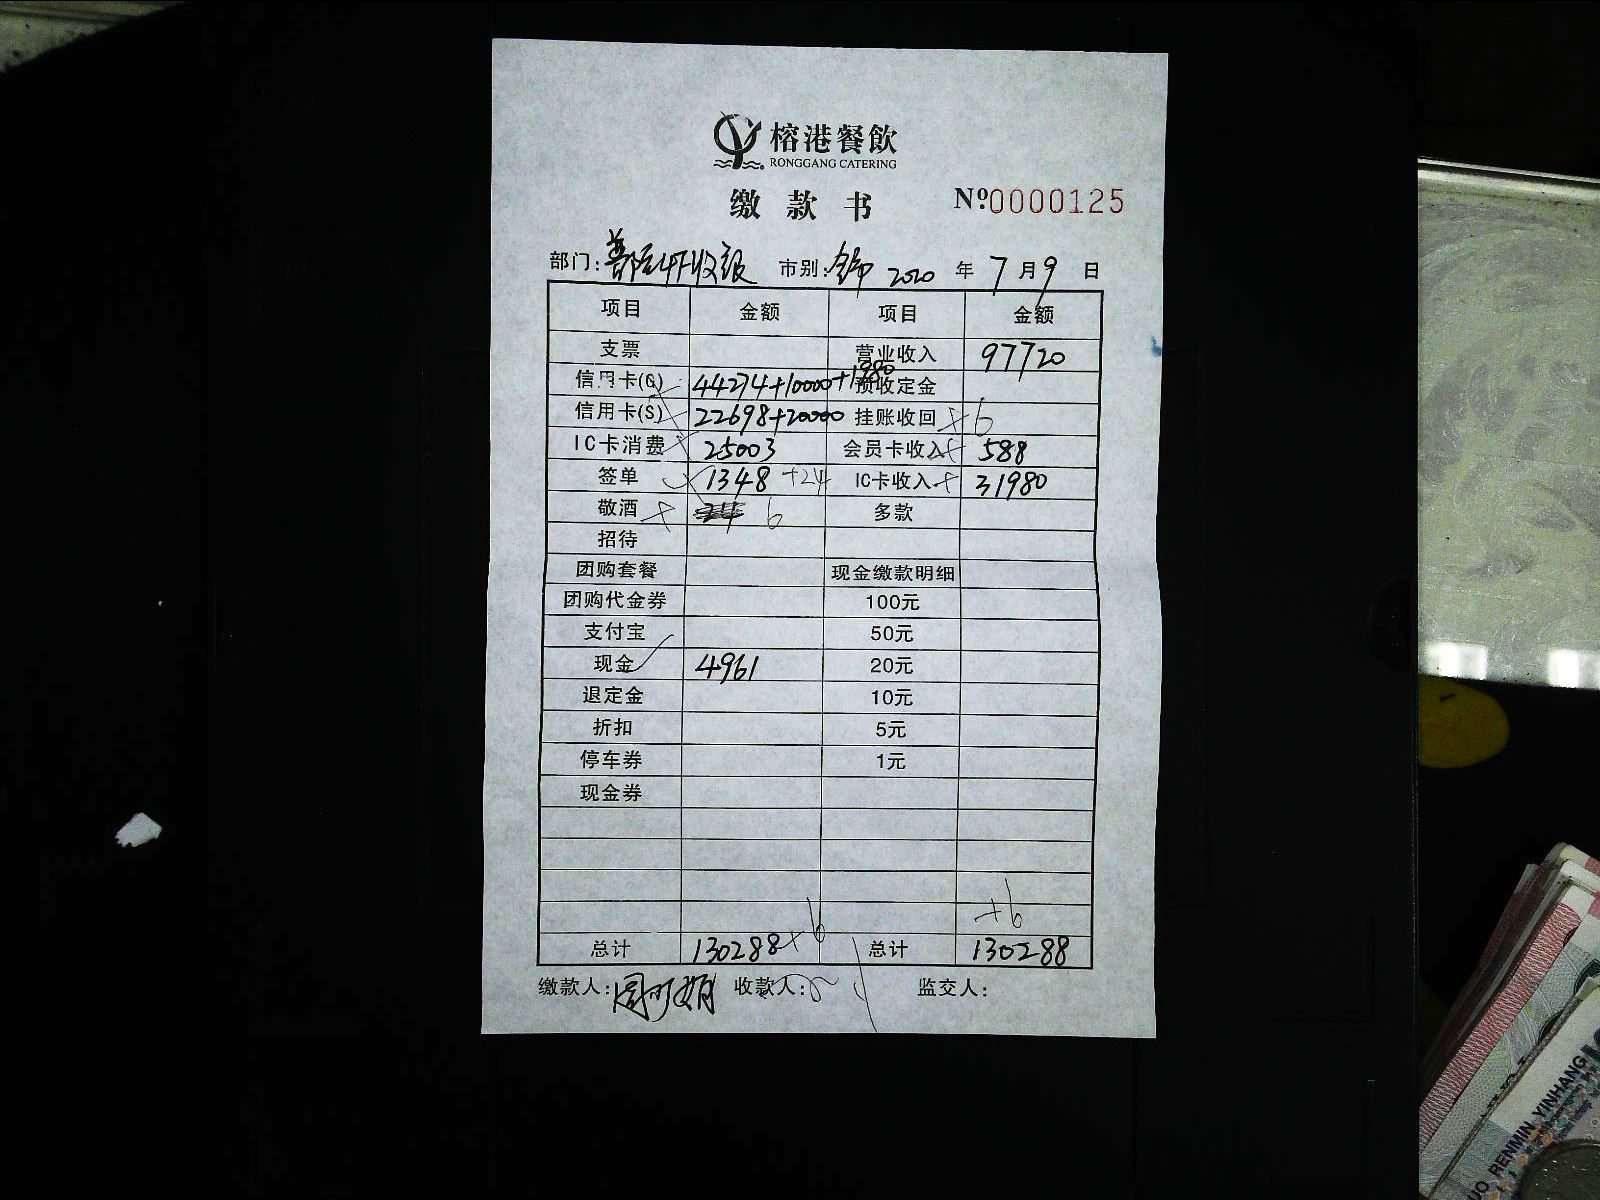 榕港餐飲
RONGGANG CATERING
缴款书 Nº0000125
部门: 市别: 2020 年 7 月 9 日
项目 金额 项目 金额
支票 营业收入 97720
信用卡(G) 44274+10000+1980 预收定金
信用卡(S) 22698+20000 挂账收回 +6
IC卡消费 25003 会员卡收入 588
签单 1348 +24 IC卡收入 31980
敬酒 24 6 多款
招待
团购套餐 现金缴款明细
团购代金券 100元
支付宝 50元
现金 4961 20元
退定金 10元
折扣 5元
停车券 1元
现金券
+6
总计 130288+6 总计 130288
缴款人: 收款人: 监交人:
RENMIN YINHANG